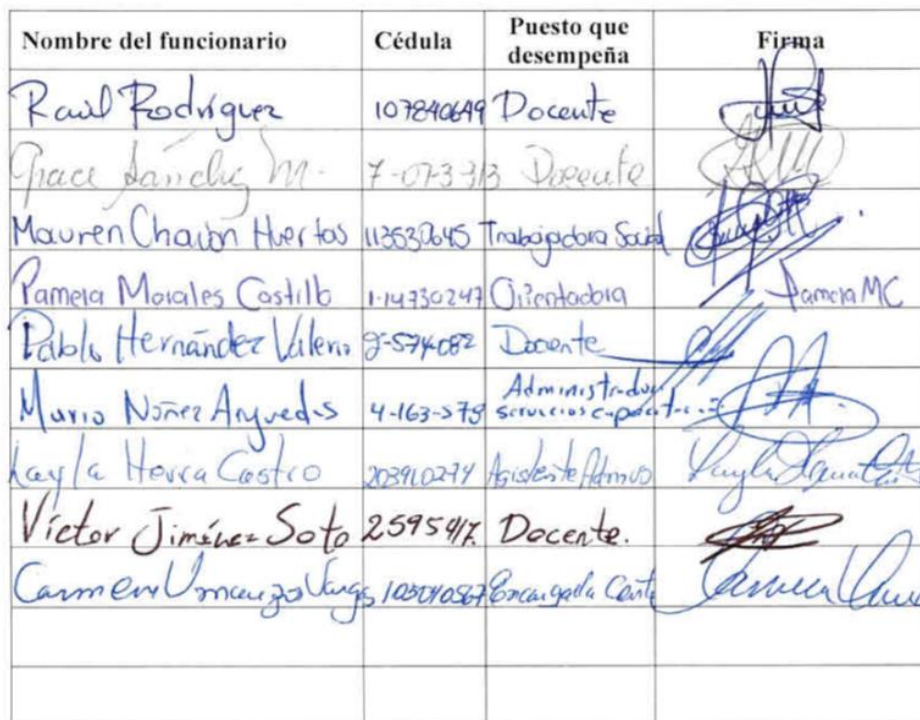 Nombre del funcionario Cédula Puesto que desempeña Firma
Raúl Rodríguez 107840649 Docente
Grace Sánchez M. Docente
Mauren Chavón Huertas 113530645 Trabajadora Social
Pamela Morales Castillo 1-14730247 Orientadora Pamela MC
Pablo Hernández Valerio 2-574-082 Docente
Mario Núñez Arguedas 4-163-579 Administrador servicios
Layla Herra Castro 203910274 Asistente Admvo
Víctor Jiménez Soto 2595417. Docente.
Carmen Umanzor Vargas Encargada